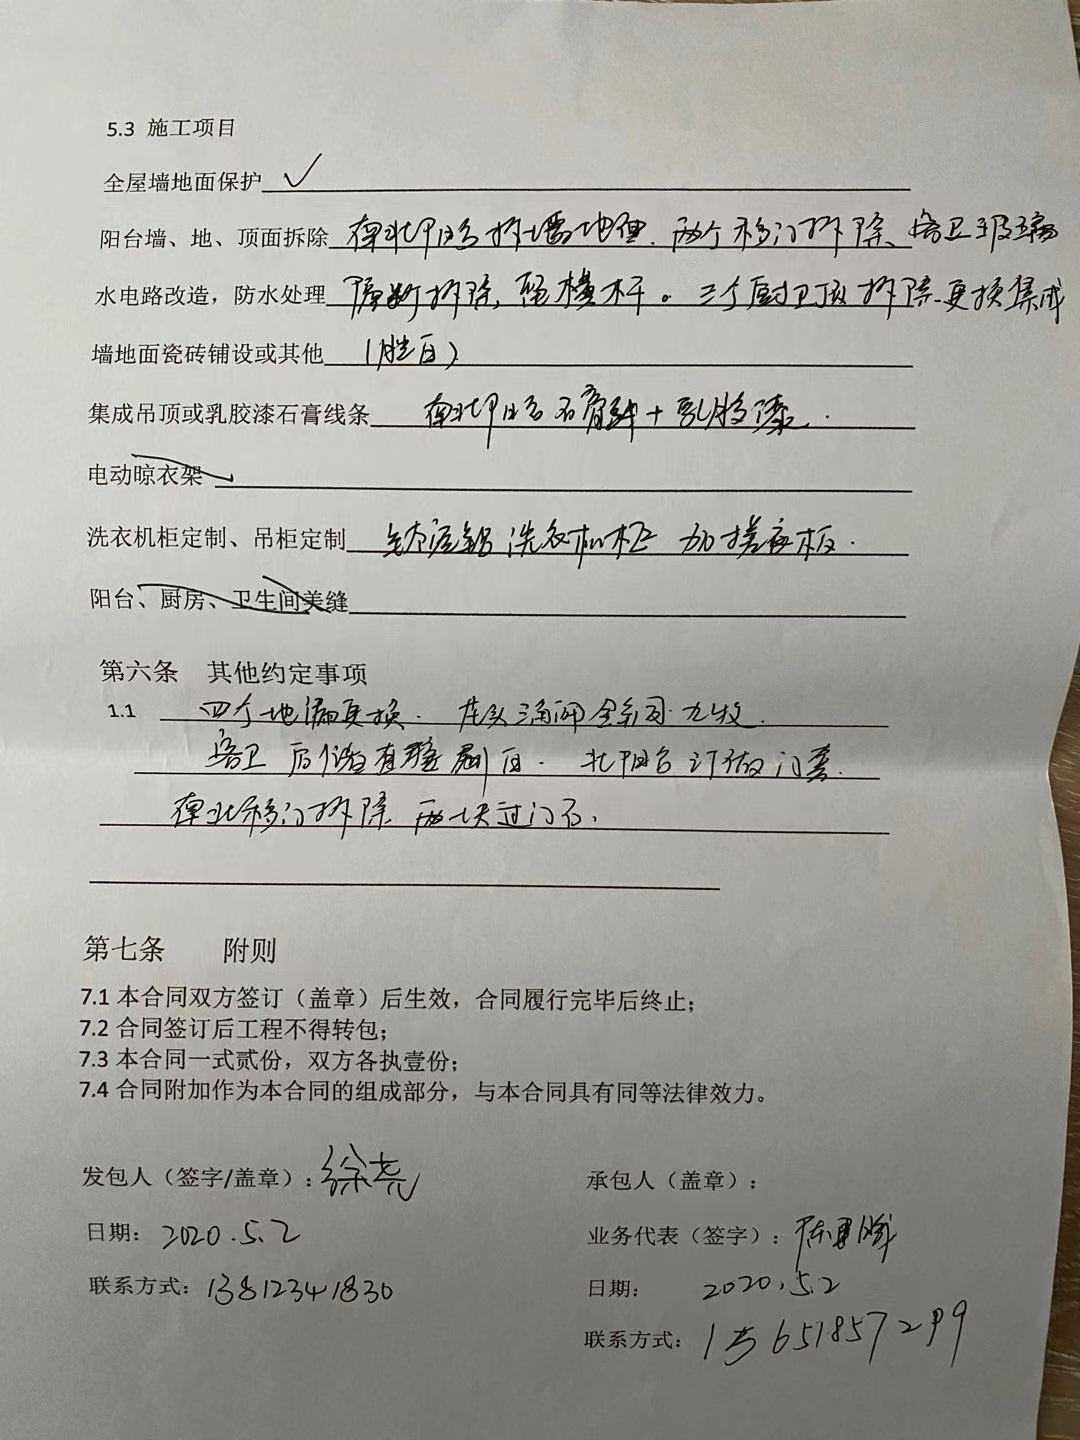 5.3 施工项目
全屋墙地面保护 ✓
阳台墙、地、顶面拆除 南北阳台拆墙地砖、两个移门拆除、客卫玻璃
水电路改造，防水处理 隔断拆除，留横杆。三个厨卫顶拆除更换集成
墙地面瓷砖铺设或其他
集成吊顶或乳胶漆石膏线条 南北阳台石膏线+乳胶漆.
电动晾衣架
洗衣机柜定制、吊柜定制 洗衣机柜 加搓衣板.
阳台、厨房、卫生间美缝
第六条 其他约定事项
1.1 四个地漏更换. 三角阀全系列 九牧.
客卫 北阳台订做门套.
南北移门拆除 两块过门石.
第七条 附则
7.1 本合同双方签订（盖章）后生效，合同履行完毕后终止；
7.2 合同签订后工程不得转包；
7.3 本合同一式贰份，双方各执壹份；
7.4 合同附加作为本合同的组成部分，与本合同具有同等法律效力。
发包人（签字/盖章）：徐亮
承包人（盖章）：
日期：2020.5.2
业务代表（签字）：
联系方式：13812341830
日期： 2020.5.2
联系方式：